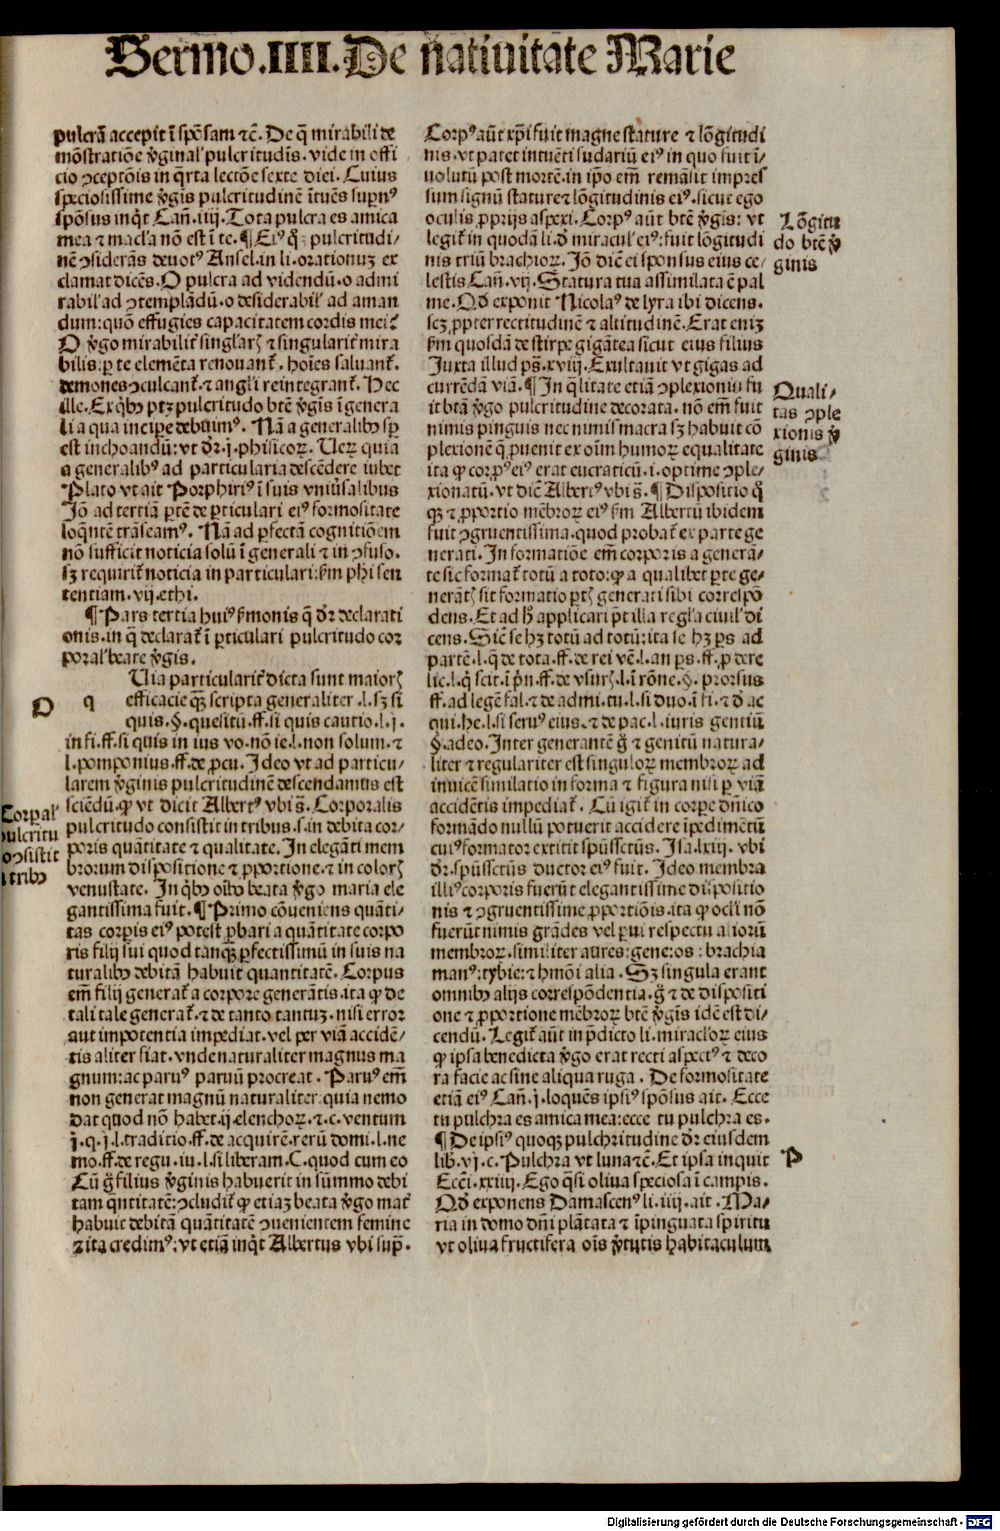 Sermo.IIII.De natiuitate Marie
pulcrā accepit ī spōsam ⁊c̄. De q̄ mirabili de
mōstratiōe v̓ginal' pulcritudīs. vide in offi
cio ꝯceptōis in q̄rta lectōe sexte diei. Cuius
speciosissime v̓gīs pulcritudinē ītuēs supn᷒
spōsus inq̄t Cañ.iiij. Tota pulcra es amica
mea ⁊ macl'a nō est ī te. ¶ Ei᷒ q̄ꝫ pulcritudi⸗
nē ꝯsiderās deuot᷒ Ansel. in li. orationuꝫ ex
clamat dicēs. O pulcra ad videndū. o admi
rabil' ad ꝯtemplādū. o desiderabil' ad aman
dum: quō effugies capacitatem cordis mei?
O v̓go mirabilit̓ singl'arꝭ ⁊ singularit̓ mira
bilis: ꝑ te elemēta renouant̓. hoīes saluant̓.
demones ꝯculcant̓. ⁊ angl'i reintegrant̓. Hec
ille. Ex qͥbꝰ ptꝫ pulcritudo btē v̓gīs ī genera
li a qua incipe debuim᷒. Nā a generalibꝰ sp̄
est inchoandū: vt dr̄.j. phisicoꝝ. Ueꝝ quia
a generalib᷒ ad particularia descēdere iubet
Plato vt ait Porphiri᷒ ī suis vniu̓salibus
Jō ad tertiā ꝑtē de ꝑticulari ei᷒ formositate
loq̄ntē trāseam᷒. Nā ad ꝑfectā cognitiōem
nō sufficit noticia solū ī generali ⁊ in ꝯfuso.
sꝫ requirit̓ noticia in particulari: ẜm phi sen
tentiam. vij. ethi.
¶ Pars tertia hui᷒ ẜmonis q̄ dr̄ declarati
onis. in q̄ declarat̓ ī ꝑticulari pulcritudo cor
poral' beate v̓gis.
Uia particularit̓ dicta sunt maiorꝭ
O
q
efficacie q̄ꝫ scripta generaliter .l. sꝫ si
quis.§. quesitū. ff. si quis cautio. l. j.
in fi. ff. si quis in ius vo. nō ie. l. non solum. ⁊
l. pomponius. ff. de ꝓcu. Ideo vt ad particu⸗
larem v̓ginis pulcritudinē descendamus est
sciēdū. ꝙ vt dicit Albert᷒ vbi s̄. Corporalis
Corpal'
pulcritudo consistit in tribus. s. in debita cor⸗
ulcritu
poris quātitate ⁊ qualitate. In elegāti mem
oꝯsistit
brorum dispositione ⁊ ꝓportione. ⁊ in colorꝭ
tribꝰ
venustate. In qͥbꝰ oībꝰ beata v̓go maria ele
gantissima fuit. ¶ Primo cōueniens quāti⸗
tas corpis ei᷒ potest ꝓbari a quātitate corpo
ris filij sui quod tanq̄ꝫ ꝑfectissimū in suis na
turalibꝰ debitā habuit quantitatē. Corpus
em̄ filij generat̓ a corpore generātis. ita ꝙ de
tali tale generat̓. ⁊ de tanto tantuꝫ. nisi error
aut impotentia impediat. vel per viā accidē⸗
tis aliter fiat. vnde naturaliter magnus ma
gnum: ac paru᷒ paruū procreat. Paru᷒ em̄
non generat magnū naturaliter: quia nemo
dat quod nō habet. ij. elenchoꝝ. ⁊. c. ventum
j. q. j. l. traditio. ff. de acquirē. rerū domi. l. ne
mo. ff. de regu. iu. l. si liberam. C. quod cum eo
Cū g̊ filius v̓ginis habuerit in summo debi
tam q̄ntitatē: ꝯcludit̓ ꝙ etiaꝫ beata v̓go mat̓
habuit debitā quātitatē ꝯuenientem femine
⁊ ita credim᷒: vt etiā inq̄t Albertus vbi sup̄.
Corp᷒ aūt xp̄i fuit magne stature ⁊ lōgitudi
nis. vt patet intuēti sudariū ei᷒ in quo fuit ī⸗
uolutū post mortē. in ip̄o em̄ remāsit impres
sum signū stature ⁊ lōgitudinis ei᷒. sicut ego
oculis ꝓprijs aspexi. Corp᷒ aūt btē v̓gis: vt
legit̓ in quodā li. d̓ miracul' ei᷒: fuit lōgitudi
nis triū brachioꝝ. Jō dic̄ ei sponsus eius ce⸗
lestis Cañ. vij. Statura tua assimilata ē pal
me. Qd̓ exponit Nicola᷒ de lyra ibi dicens.
scꝫ ꝓpter rectitudinē ⁊ altitudinē. Erat eniꝫ
ẜm quosdā de stirpe gigātea sicut eius filius
Juxta illud ps̄. xviij. Exultauit vt gigas ad
currēdā viā. ¶ In q̄litate etiā ꝯplexioniu fu
it btā v̓go pulcritudine decorata. nō em̄ fuit
nimis pinguis nec nimis macra sꝫ habuit cō
plexionē q̄ ꝓuenit ex oīm humoꝝ equalitate
ita ꝙ corp᷒ ei᷒ erat eucraticū. i. optime ꝯple⸗
xionatū. vt dic̄ Albert᷒ vbi s̄. ¶ Dispositio q̄
qꝫ ⁊ ꝓportio mēbroꝝ ei᷒ ẜm Albertū ibidem
fuit ꝯgruentissima. quod probat̓ ex parte ge
nerati. In formatiōe em̄ corporis a generā⸗
te sic format̓ totū a toto: ꝙ a qualibet ꝑte ge⸗
nerātꝭ sit formatio ꝑtꝭ generati sibi correspō
dens. Et ad h̄ applicari pt̄ illa regl'a ciuil' di
cens. Sic̄ se hꝫ totū ad totū: ita se hꝫ ps̄ ad
partē. l. q̄ de tota. ff. de rei vē. l. an ps̄. ff. ꝓ dere
lic. l. q̄ scit. ī pn̄. ff. de vsurꝭ. l. ī rōne. §. prorsus
ff. ad legē fal. ⁊ de admi. tu. l. si duo. ī fi. ⁊ d̓ ac
qui. he. l. si seru᷒ eius. ⁊ de pac. l. iuris gentiū
§. adeo. Inter generantē g̊ ⁊ genitū natura⸗
liter ⁊ regulariter est singuloꝝ membroꝝ ad
inuicē similatio in forma ⁊ figura nisi ꝑ viā
accidētis impediat̓. Cū igit̓ in corpe dn̄ico
formādo nullū potuerit accidere īpedimētū
cui᷒ formator extitit spūssctūs. Isa. lxiij. vbi
dr̄. spūssctūs ductor ei᷒ fuit. Ideo membra
illi᷒ corporis fuerūt elegantissime dispositio
nis ⁊ ꝯgruentissime ꝓportiōis. ita ꝙ ocl'i nō
fuerūt nimis grādes vel ꝑui respectu alioruꝫ
membroꝝ. similiter aures: gene: os: brachia
man᷒: tybie: ⁊ hmōi alia. Sꝫ singula erant
omnibꝰ alijs correspōdentia. g̊ ⁊ de dispositi
one ⁊ ꝓportione mēbroꝝ btē v̓gis idē est di⸗
cendū. Legit̓ aūt in p̄dicto li. miracl'oꝝ eius
ꝙ ipsa benedicta v̓go erat recti aspect᷒ ⁊ deco
ra facie ac sine aliqua ruga. De formositate
etiā ei᷒ Cañ. j. loquēs ipsi᷒ spōsus ait. Ecce
tu pulchra es amica mea: ecce tu pulchra es.
¶ De ipsi᷒ quoqꝫ pulchritudine dr̄ eiusdem
lib̓. vj. c. Pulchra vt luna ⁊c̄. Et ipsa inquit
Ecci. xxiiij. Ego q̄si oliua speciosa ī campis.
Qd̓ exponens Damascen᷒ li. iiij. ait. Ma⸗
ria in domo dn̄i plātata ⁊ īpinguata spiritu
vt oliua fructifera oīs v̓tutis habitaculum
Lōgitu
do btē v̓
ginis
Quali⸗
tas ꝯple
xionis v̓
ginis
P
Digitalisierung gefördert durch die Deutsche Forschungsgemeinschaft - DFG